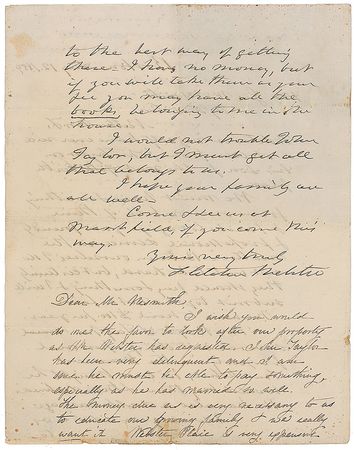 to the best way of getting
these. I have no money, but
if you will take them as your
fee you may have all the
books, belonging to me in the
house.
I would not trouble John
Taylor, but I must get all
that belongs to us.
I hope your family are
all well—
Come & see us at
Marshfield, if you come this
way.
Yours very truly
Fletcher Webster
Dear Mr. Nesmith
I wish you would
do me the favor to look after our property
as Mr. Webster has requested. John Taylor
has been very delinquent and I am
sure he must be able to pay something,
especially as he has married so well.
The money due us is very necessary to us
to educate our growing family & we really
want it. Webster Place is very expensive